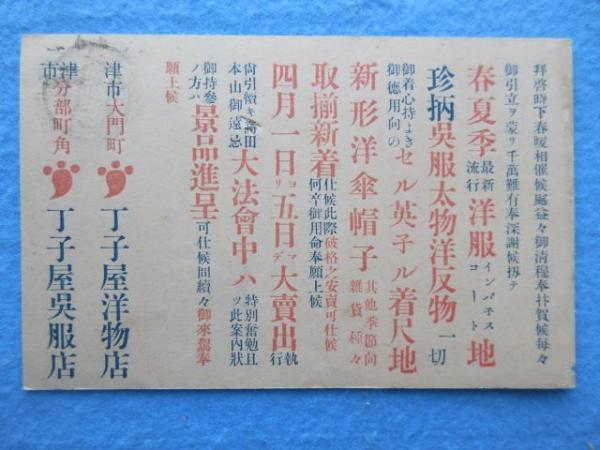 拝啓時下春暖相催候処益々御清穆奉抃賀候毎々
御引立ヲ蒙リ千萬難有奉深謝候扨テ
春夏季最新流行洋服インバネスコート地
珍柄呉服太物洋反物一切
御着心持よき御徳用向のセル英子ル着尺地
新形洋傘帽子其他季節向雑貨種々
取揃新着仕候此際破格之安賣可仕候何卒御用命奉願上候
四月一日ヨリ五日マデ大賣出執行
尚引續キ高田本山御遠忌大法會中ハ特別奮勉且ツ此案内狀
御持参ノ方ハ景品進呈可仕候間續々御来駕奉
願上候
津市大門町丁子屋洋物店
津市分部町角丁子屋呉服店